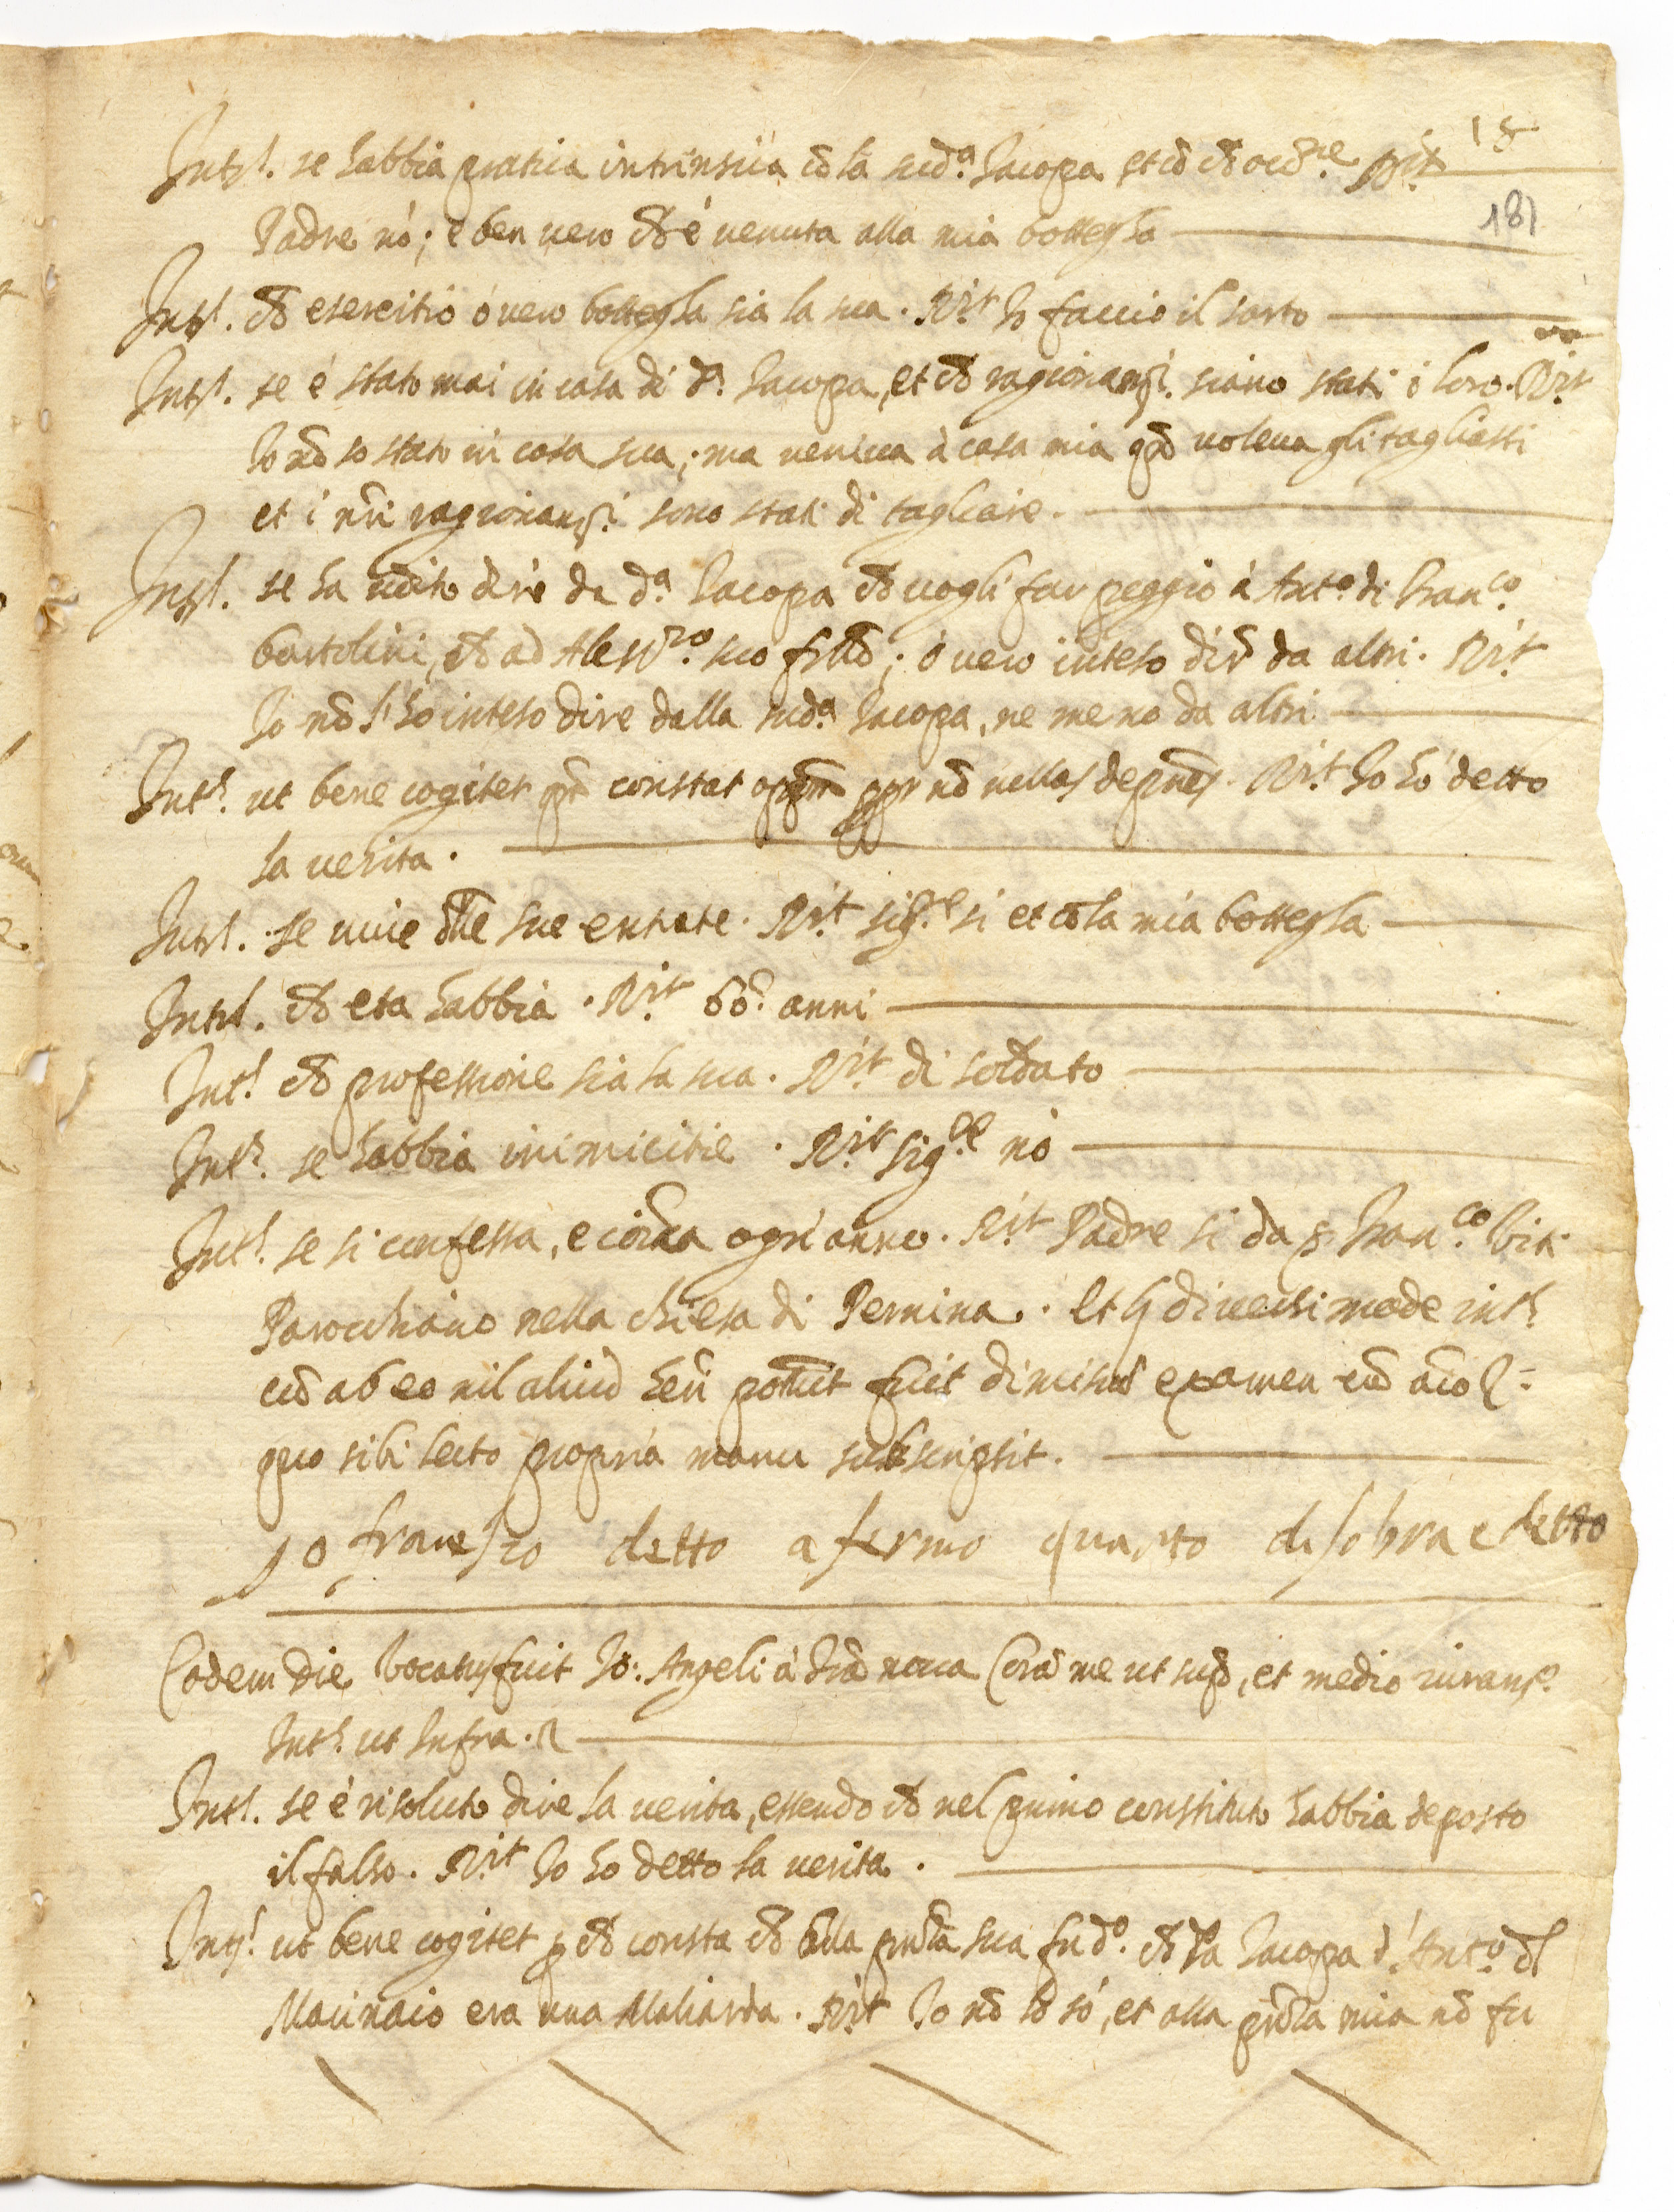 18
Int.s se habbia pratica intrinsica cō la sud.a Iacopa et cō chō occ.ne R.it
181
Padre nò; è ben vero chō è venuta alla mia bottegha
Int.s chō esercitio ò vero bottegha sia la sua. R.it Io faccio il sarto
Int.s se è stato mai in casa di d.a Iacopa, et chō ragionam.ti siano stati i loro. R.it
Io nō so stato in casa sua; ma veniva à casa mia qdō voleva gli tagliassi
et i nri ragionam.ti sono stati di tagliare.
Int.s se ha udito dire da d.a Iacopa chō vogli far peggio à Ant.o di Fran.co
bartolini, chō ad Aless.ro suo frello; ò vero inteso dir da altri. R.it
Io nō l'hò inteso dire dalla sud.a Iacopa, ne meno da altri
Int.s ut bene cogitet constat nō nullas depnes. R.it Io hò detto
la verita.
Int.s se vive dlle sue entrate. R.it sig.re si et cō la mia bottegha
Int.s chō eta habbia. R.it 60. anni
Int.s chō professione sia la sua. R.it di soldato
Int.s se habbia inimicitie. R.it sig.re nò
Int.s se si confessa, e ogni anno. R.it Padre si da p. Fran.co
Parochiano nella chiesa di Pernina. Et diversi mode int.s
cū ab eo nil aliud heri potuit fuit dimissū examen cū aīo &=
quo sibi lecto propria manu subscripsit.
Io franc.sco detto afermo quanto di sobra e detto
Eodem Die Vocatus fuit Io: Angeli à nova Corā me ut supō, et medio iuram.to
Int.s ut Infra. &
Int.s se è risoluto dire la verita, essendo chō nel primo constituto habbia deposto
il falso. R.it Io ho detto la verita.
Int.s ut bene cogitet p chō consta chō alla pnza sua fu d.o chō la Iacopa d'Ant.o dl
Macinaio era una Maliarda. R.it Io nō lo sò, et alla pnza mia nō fu